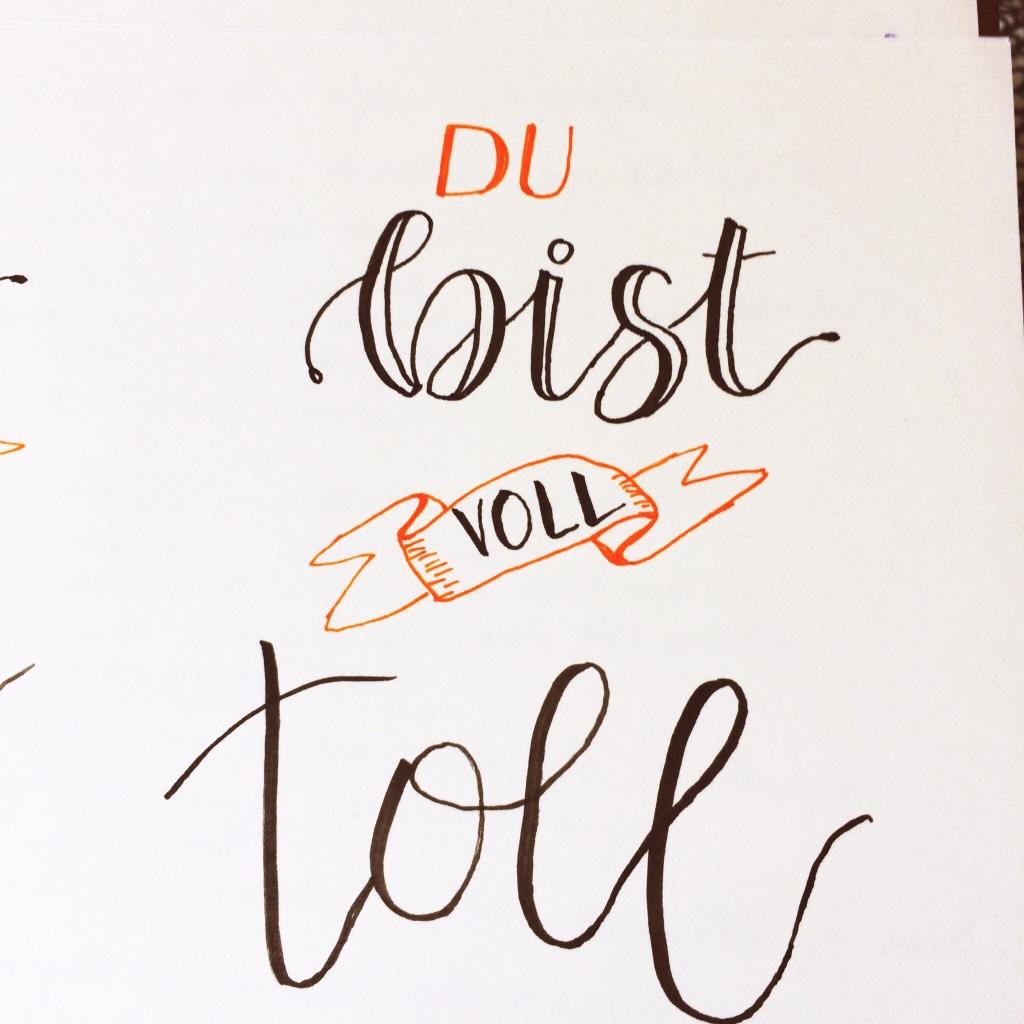 DU
bist
VOLL
toll